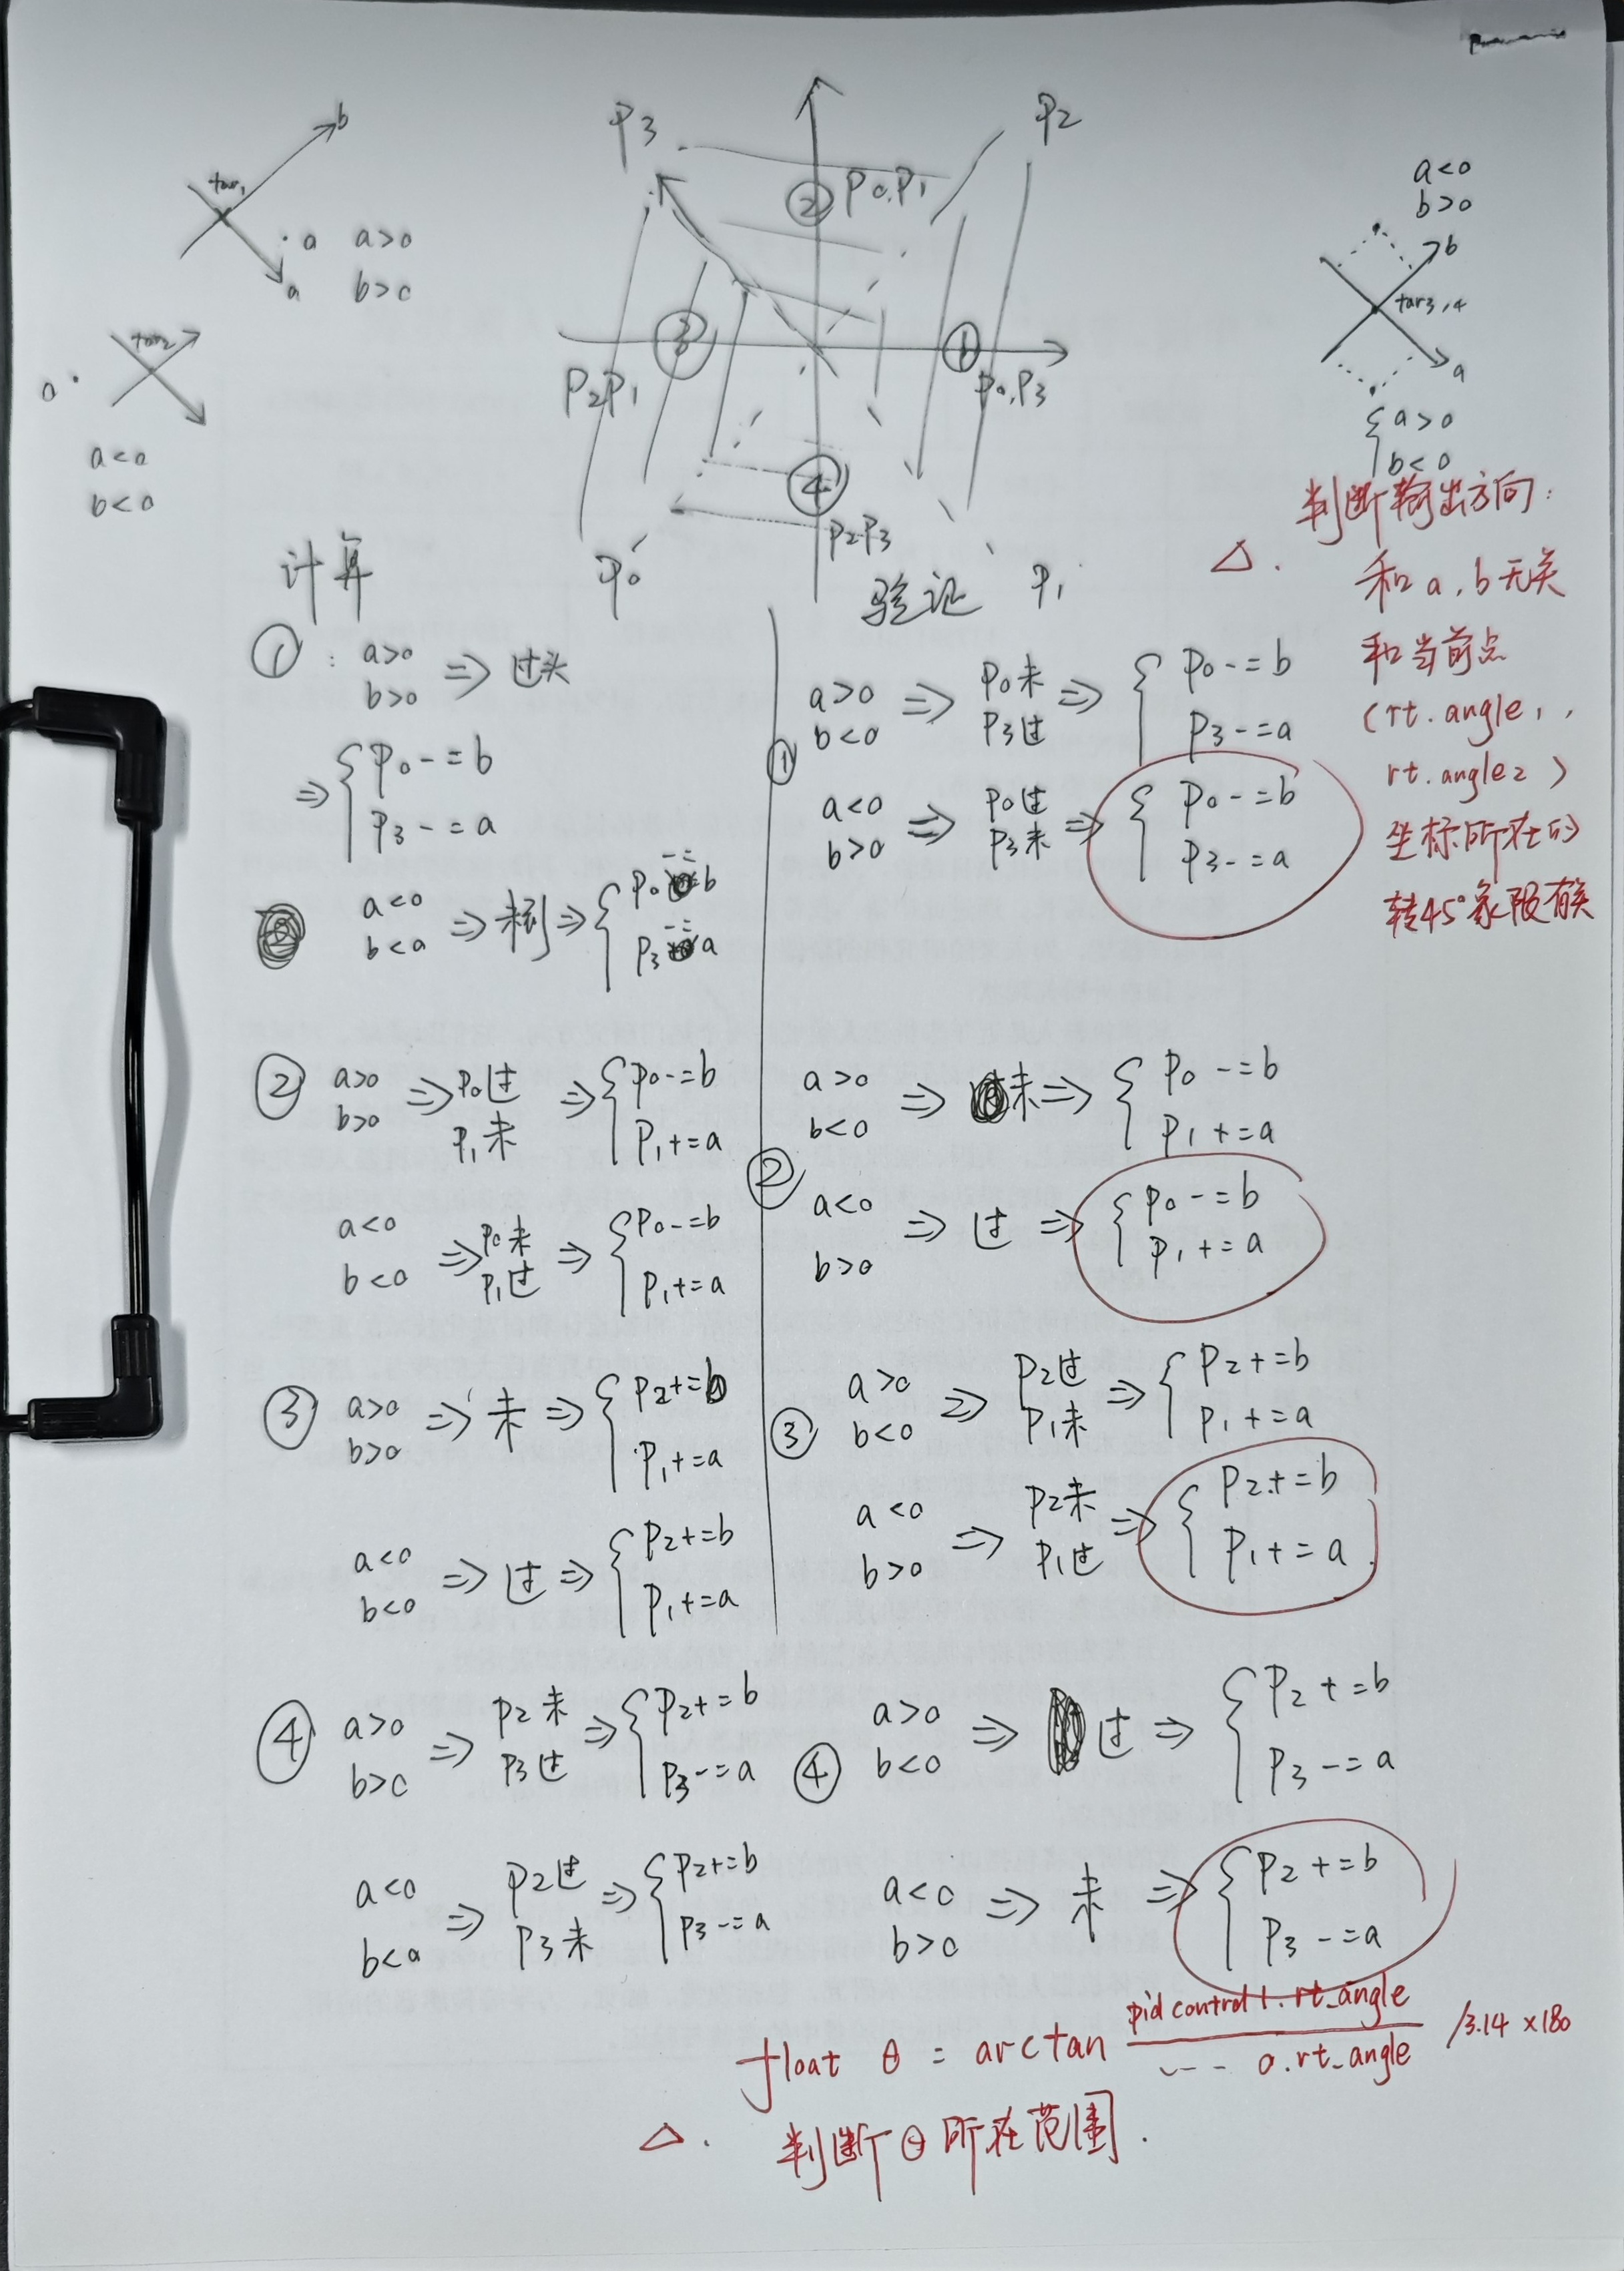 b
tar₁
a a>0
a b>0
tar₂
a
a<0
b<0
P3 P2
② P0,P1
③ ①
P2P1 P0,P3
④
P2P3
P0 P1
a<0
b>0
b
tar3,4
a
{ a>0
b<0
判断输出方向:
△. 和a,b无关
和当前点
(rt.angle1,
rt.angle2)
坐标所在的
转45°象限有关
计算
①: a>0 b>0 => 过头
=> { P0-=b
P3-=a
a<0 b<0 => 未到 => { P0-=b
P3-=a
② a>0 b>0 => P0过 P1未 => { P0-=b
P1+=a
a<0 b<0 => P0未 P1过 => { P0-=b
P1+=a
③ a>0 b>0 => 未 => { P2+=b
P1+=a
a<0 b<0 => 过 => { P2+=b
P1+=a
④ a>0 b>0 => P2未 P3过 => { P2+=b
P3-=a
a<0 b<0 => P2过 P3未 => { P2+=b
P3-=a
验证
① a>0 b<0 => P0未 P3过 => { P0-=b
P3-=a
a<0 b>0 => P0过 P3未 => { P0-=b
P3-=a
② a>0 b<0 => 未 => { P0-=b
P1+=a
a<0 b>0 => 过 => { P0-=b
P1+=a
③ a>0 b<0 => P2过 P1未 => { P2+=b
P1+=a
a<0 b>0 => P2未 P1过 => { P2+=b
P1+=a
④ a>0 b<0 => 过 => { P2+=b
P3-=a
a<0 b>0 => 未 => { P2+=b
P3-=a
float θ = arctan pid control 1.rt_angle / --- 0.rt_angle /3.14×180
△. 判断θ所在范围.